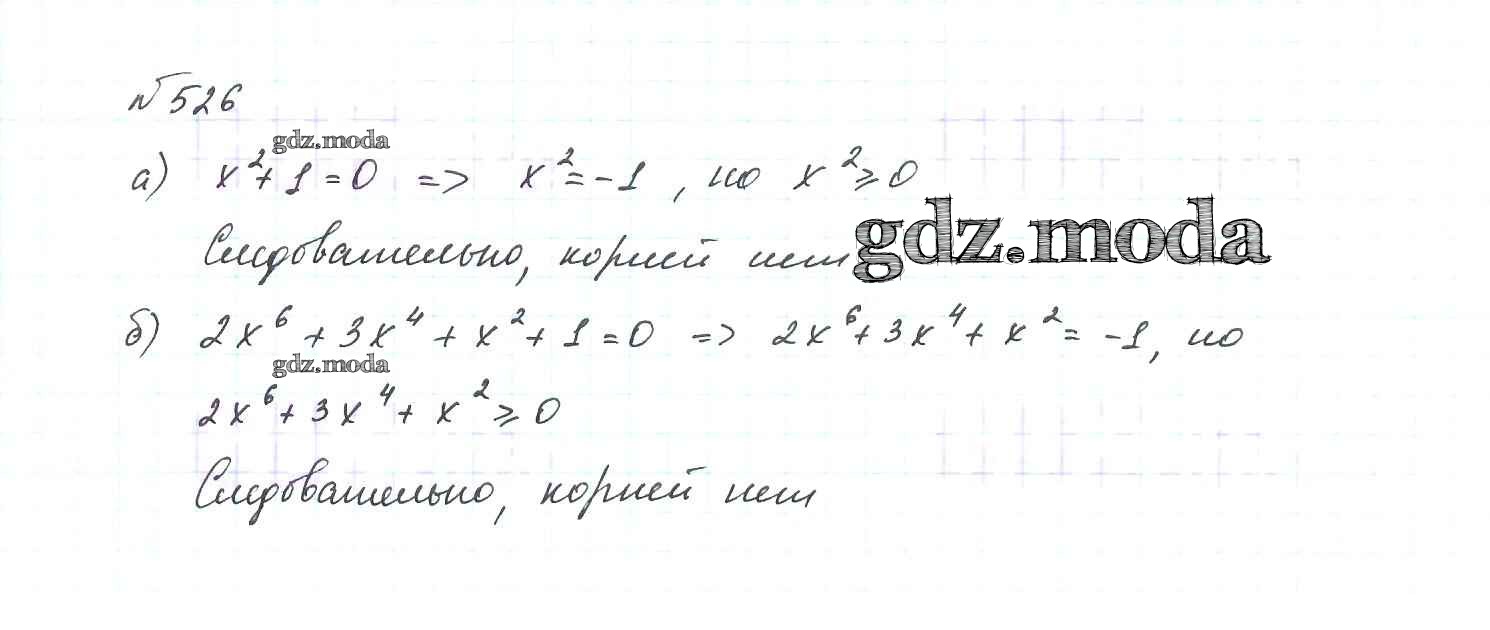 № 526
gdz.moda
а) x²+1=0 => x²=-1, но x²⩾0
Следовательно, корней нет
gdz.moda
б) 2x⁶+3x⁴+x²+1=0 => 2x⁶+3x⁴+x²=-1, но
gdz.moda
2x⁶+3x⁴+x²⩾0
Следовательно, корней нет